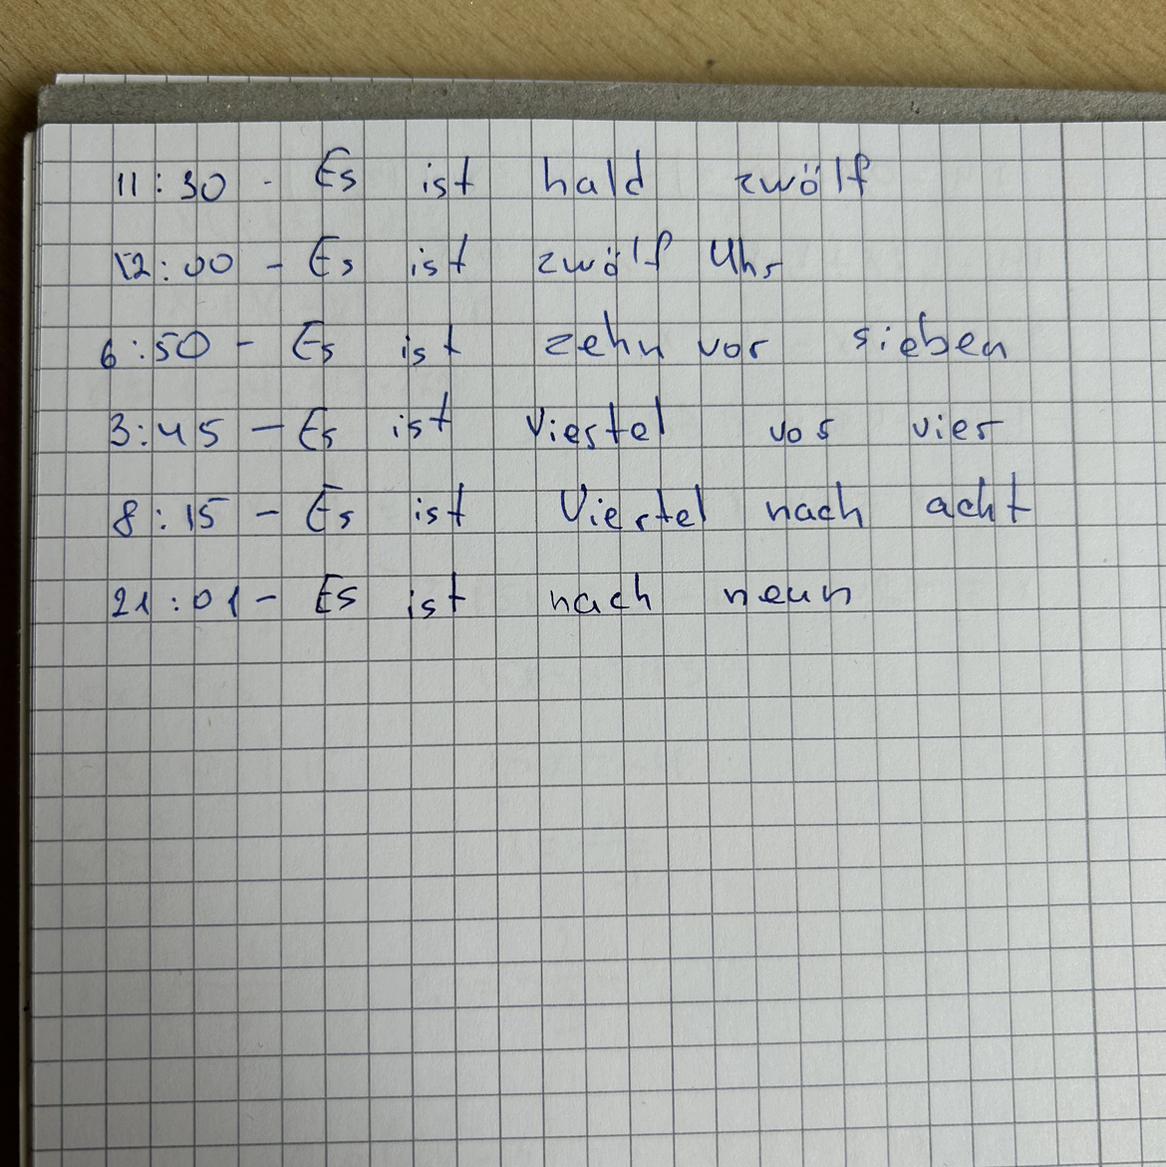 11:30 - Es ist hald zwölf
12:00 - Es ist zwölf Uhr
6:50 - Es ist zehn vor sieben
3:45 - Es ist Viertel vor vier
8:15 - Es ist Viertel nach acht
21:01 - Es ist nach neun